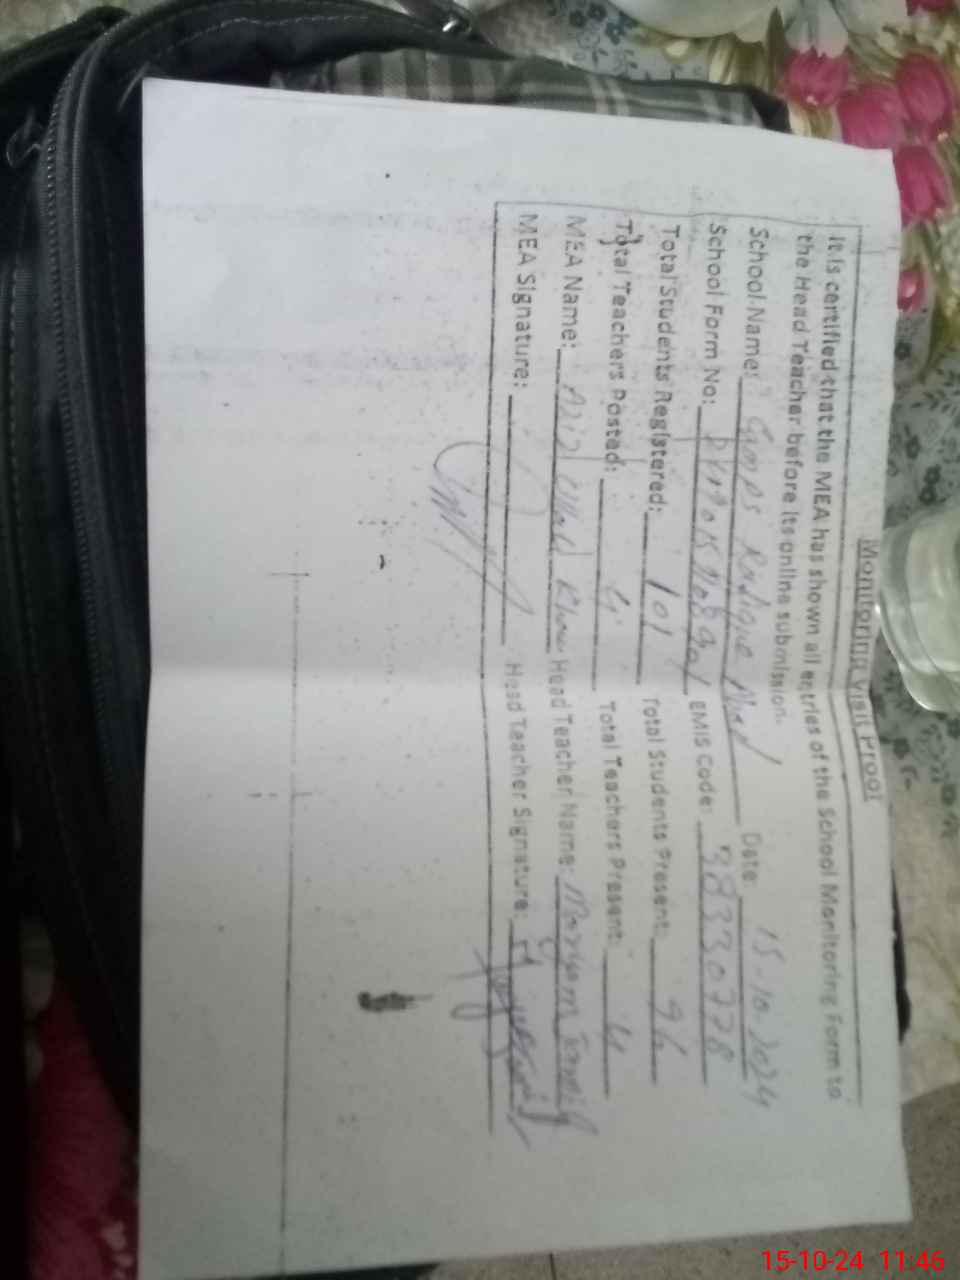 Monitoring Visit Proof
It is certified that the MEA has shown all entries of the School Monitoring Form to
the Head Teacher before its online submission.
School Name: GMPS Date: 15-10-2024
School Form No: EMIS Code: 38330778
Total Students Registered: 101 Total Students Present: 94
Total Teachers Posted: 4 Total Teachers Present: 4
MEA Name: Aziz Ullah Khan Head Teacher Name: Maryam
MEA Signature: Head Teacher Signature:
15-10-24 11:46